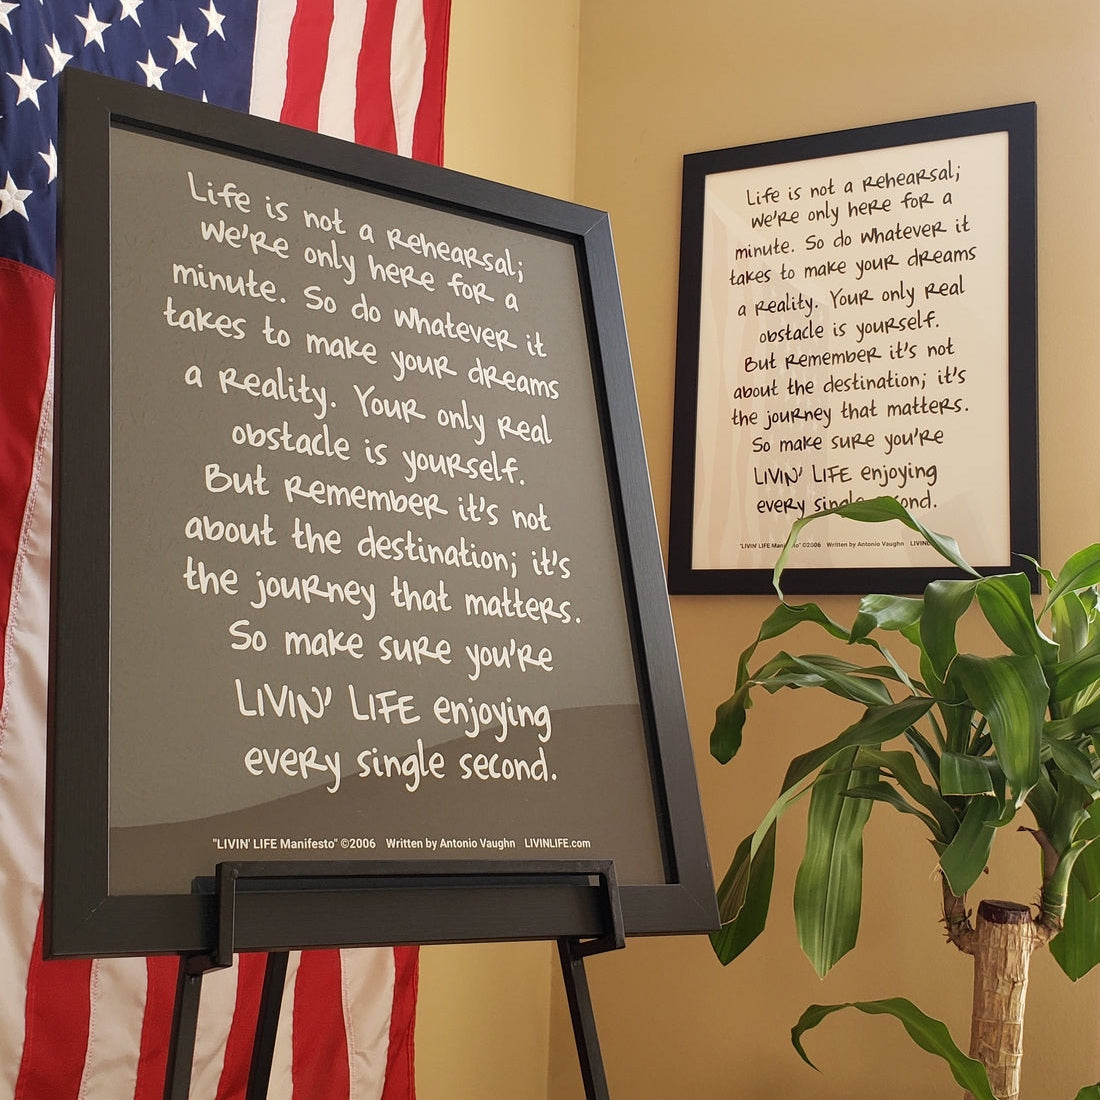 Life is not a rehearsal;
we're only here for a
minute. So do whatever it
takes to make your dreams
a reality. Your only real
obstacle is yourself.
But remember it's not
about the destination; it's
the journey that matters.
So make sure you're
LIVIN' LIFE enjoying
every single second.
"LIVIN' LIFE Manifesto" ©2006 Written by Antonio Vaughn LIVINLIFE.com
Life is not a rehearsal;
we're only here for a
minute. So do whatever it
takes to make your dreams
a reality. Your only real
obstacle is yourself.
But remember it's not
about the destination; it's
the journey that matters.
So make sure you're
LIVIN' LIFE enjoying
every single
"LIVIN' LIFE ©2006 Written by Antonio Vaughn